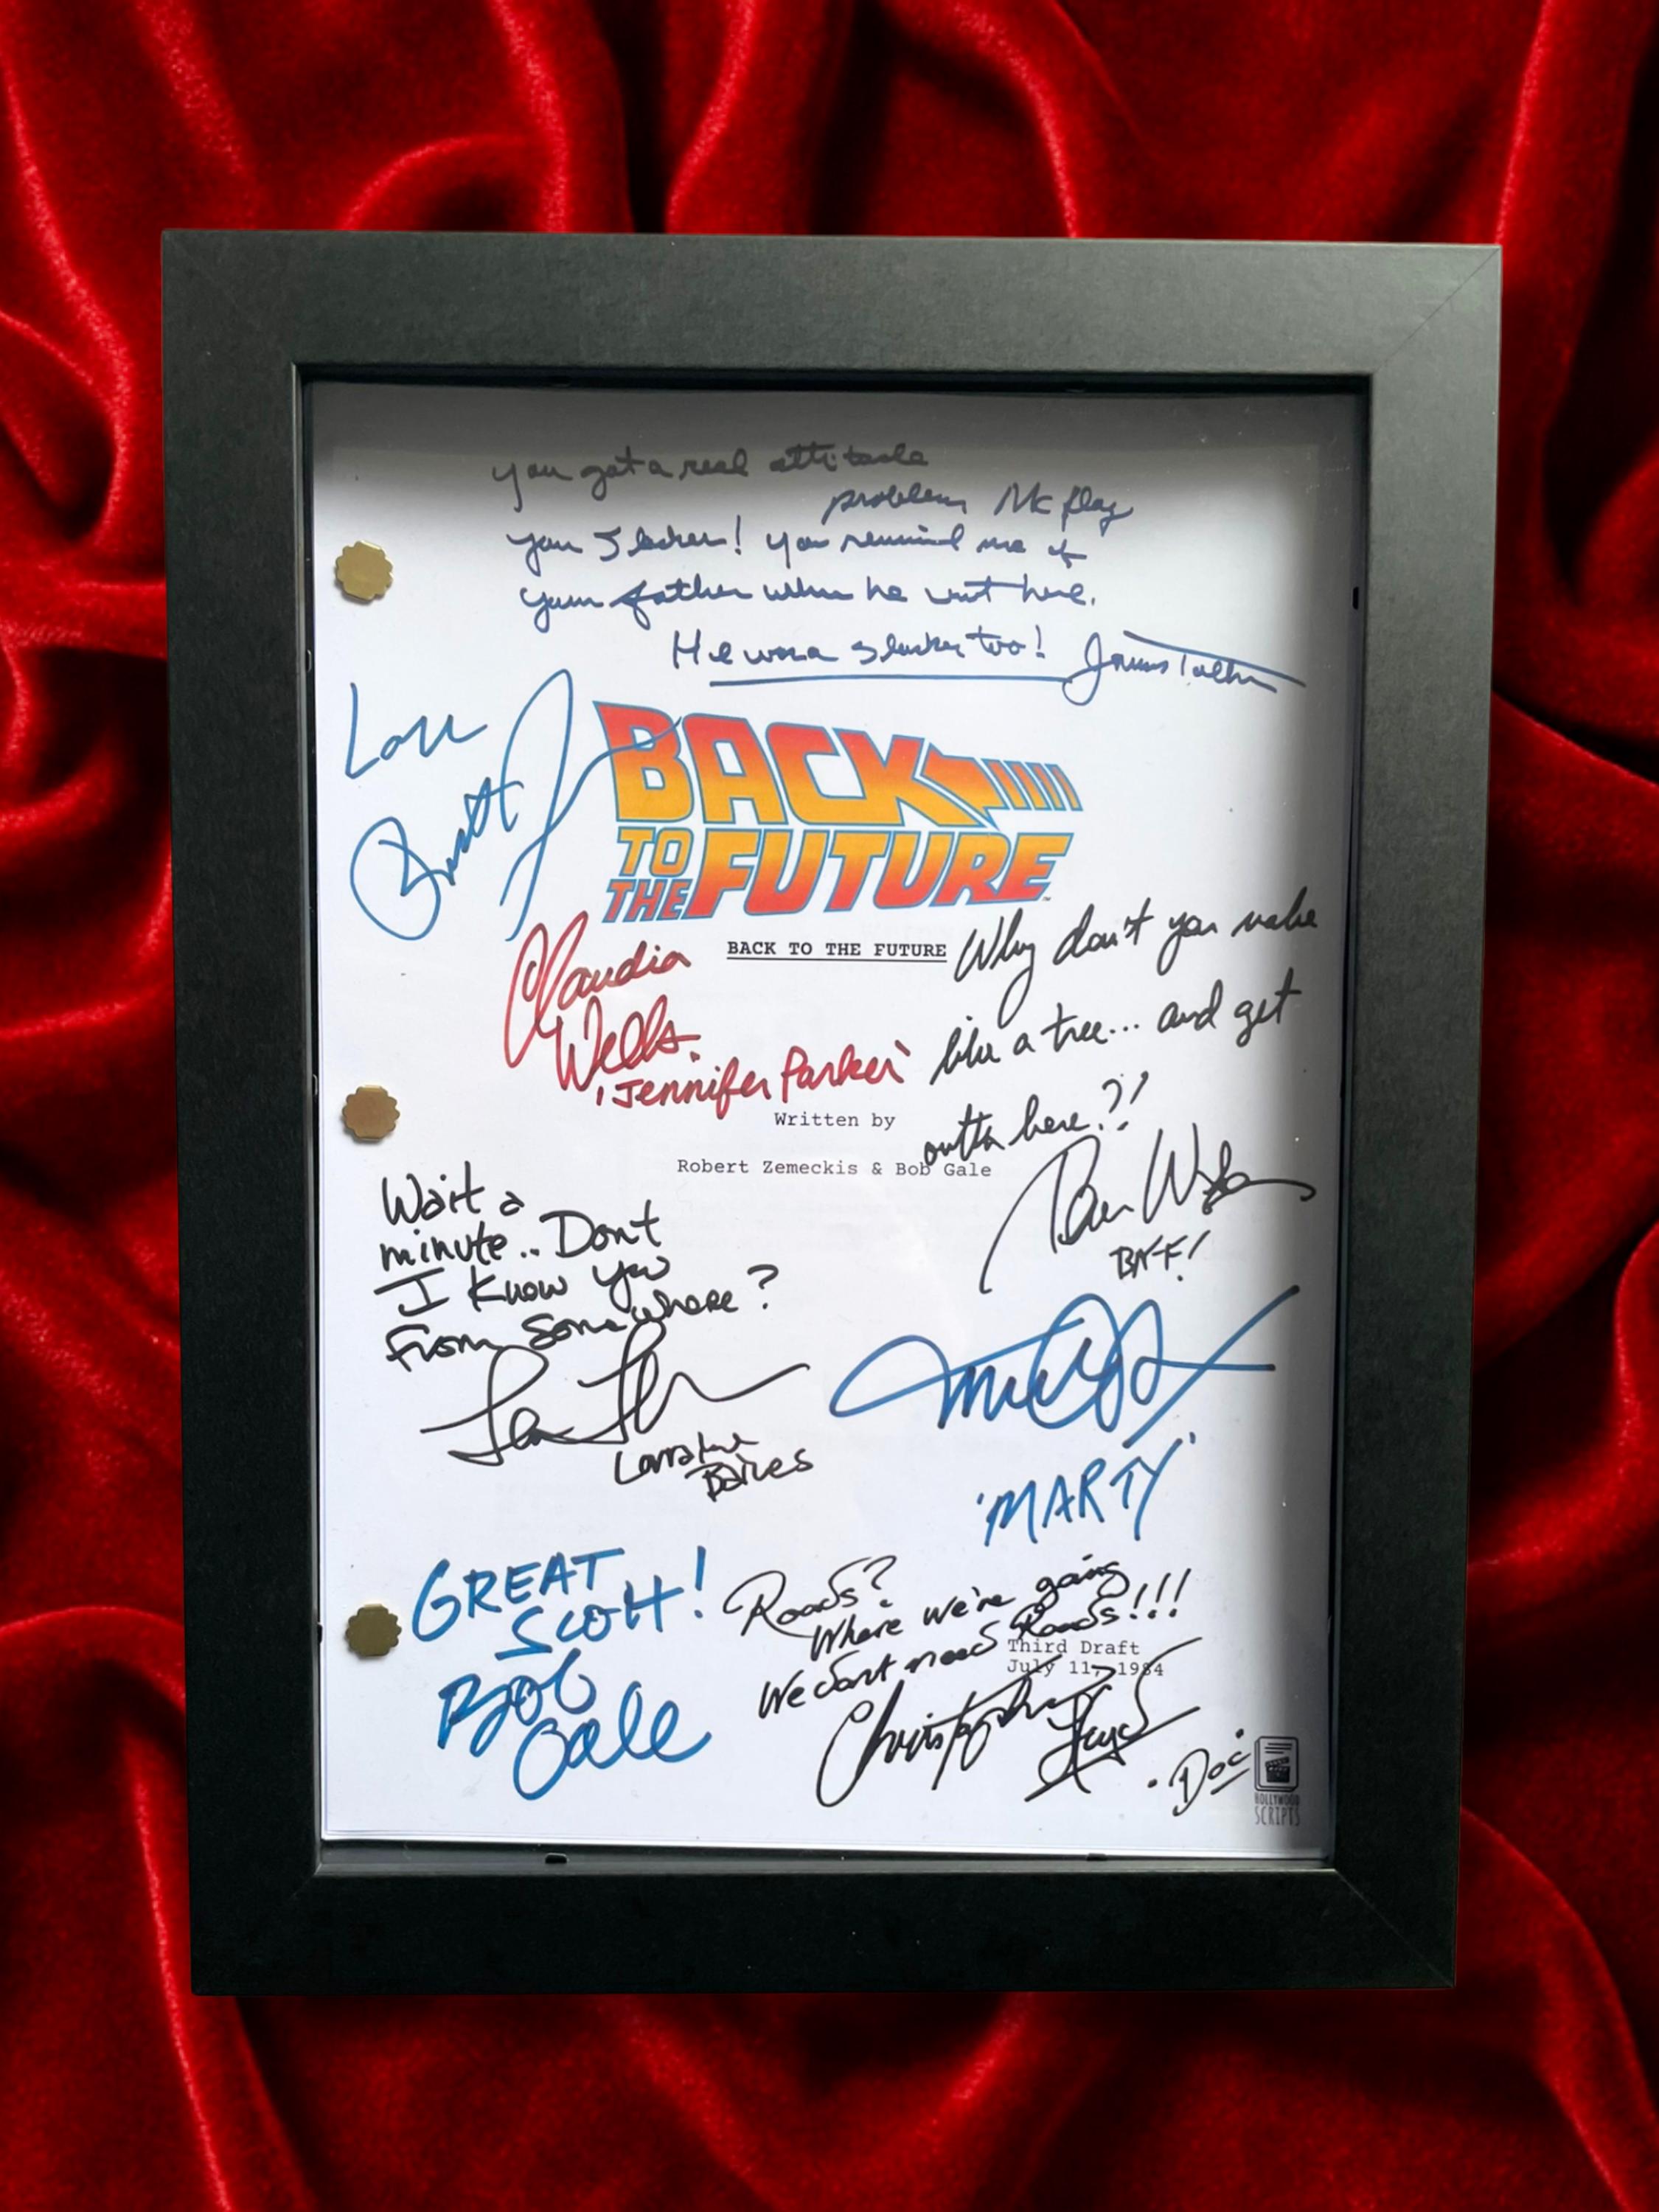 you got a real attitude
problem McFly
you Slacker! you remind me of
your father when he went here.
He was a slacker too! James Tolkan
Love
BACK
TO
THE FUTURE
™
BACK TO THE FUTURE
Claudia
Wells
'Jennifer Parker'
Why don't you make
like a tree... and get
outta here?!
Written by
Robert Zemeckis & Bob Gale
BIFF!
Wait a
minute.. Dont
I know you
from somewhere?
Lorraine
Baines
'MARTY'
GREAT
SCOTT!
Bob
Gale
Roads?
Where we're going
We dont need Roads!!!
Third Draft
July 11, 1984
Christopher
Lloyd
"Doc"
HOLLYWOOD
SCRIPTS